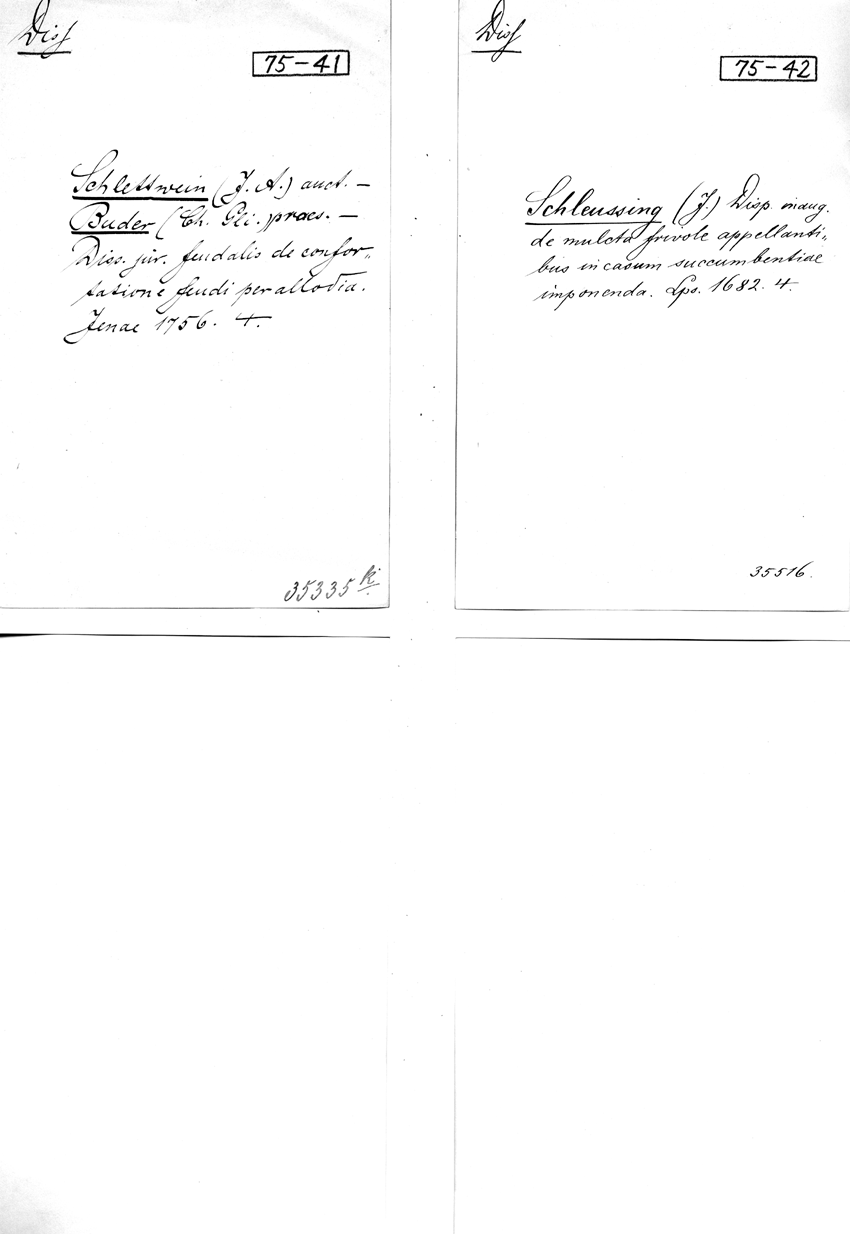 Diss
75-41
Schlettwein (J. A.) auct. —
Buder (Ch. Gli.) praes. —
Diss. jur. feudalis de confor„
tatione feudi per allodia.
Jenae 1756. 4.
35335 k
Diss
75-42
Schleussing (J.) Disp. inaug.
de mulcta frivole appellanti„
bus in casum succumbentiae
imponenda. Lps. 1682. 4.
35516.